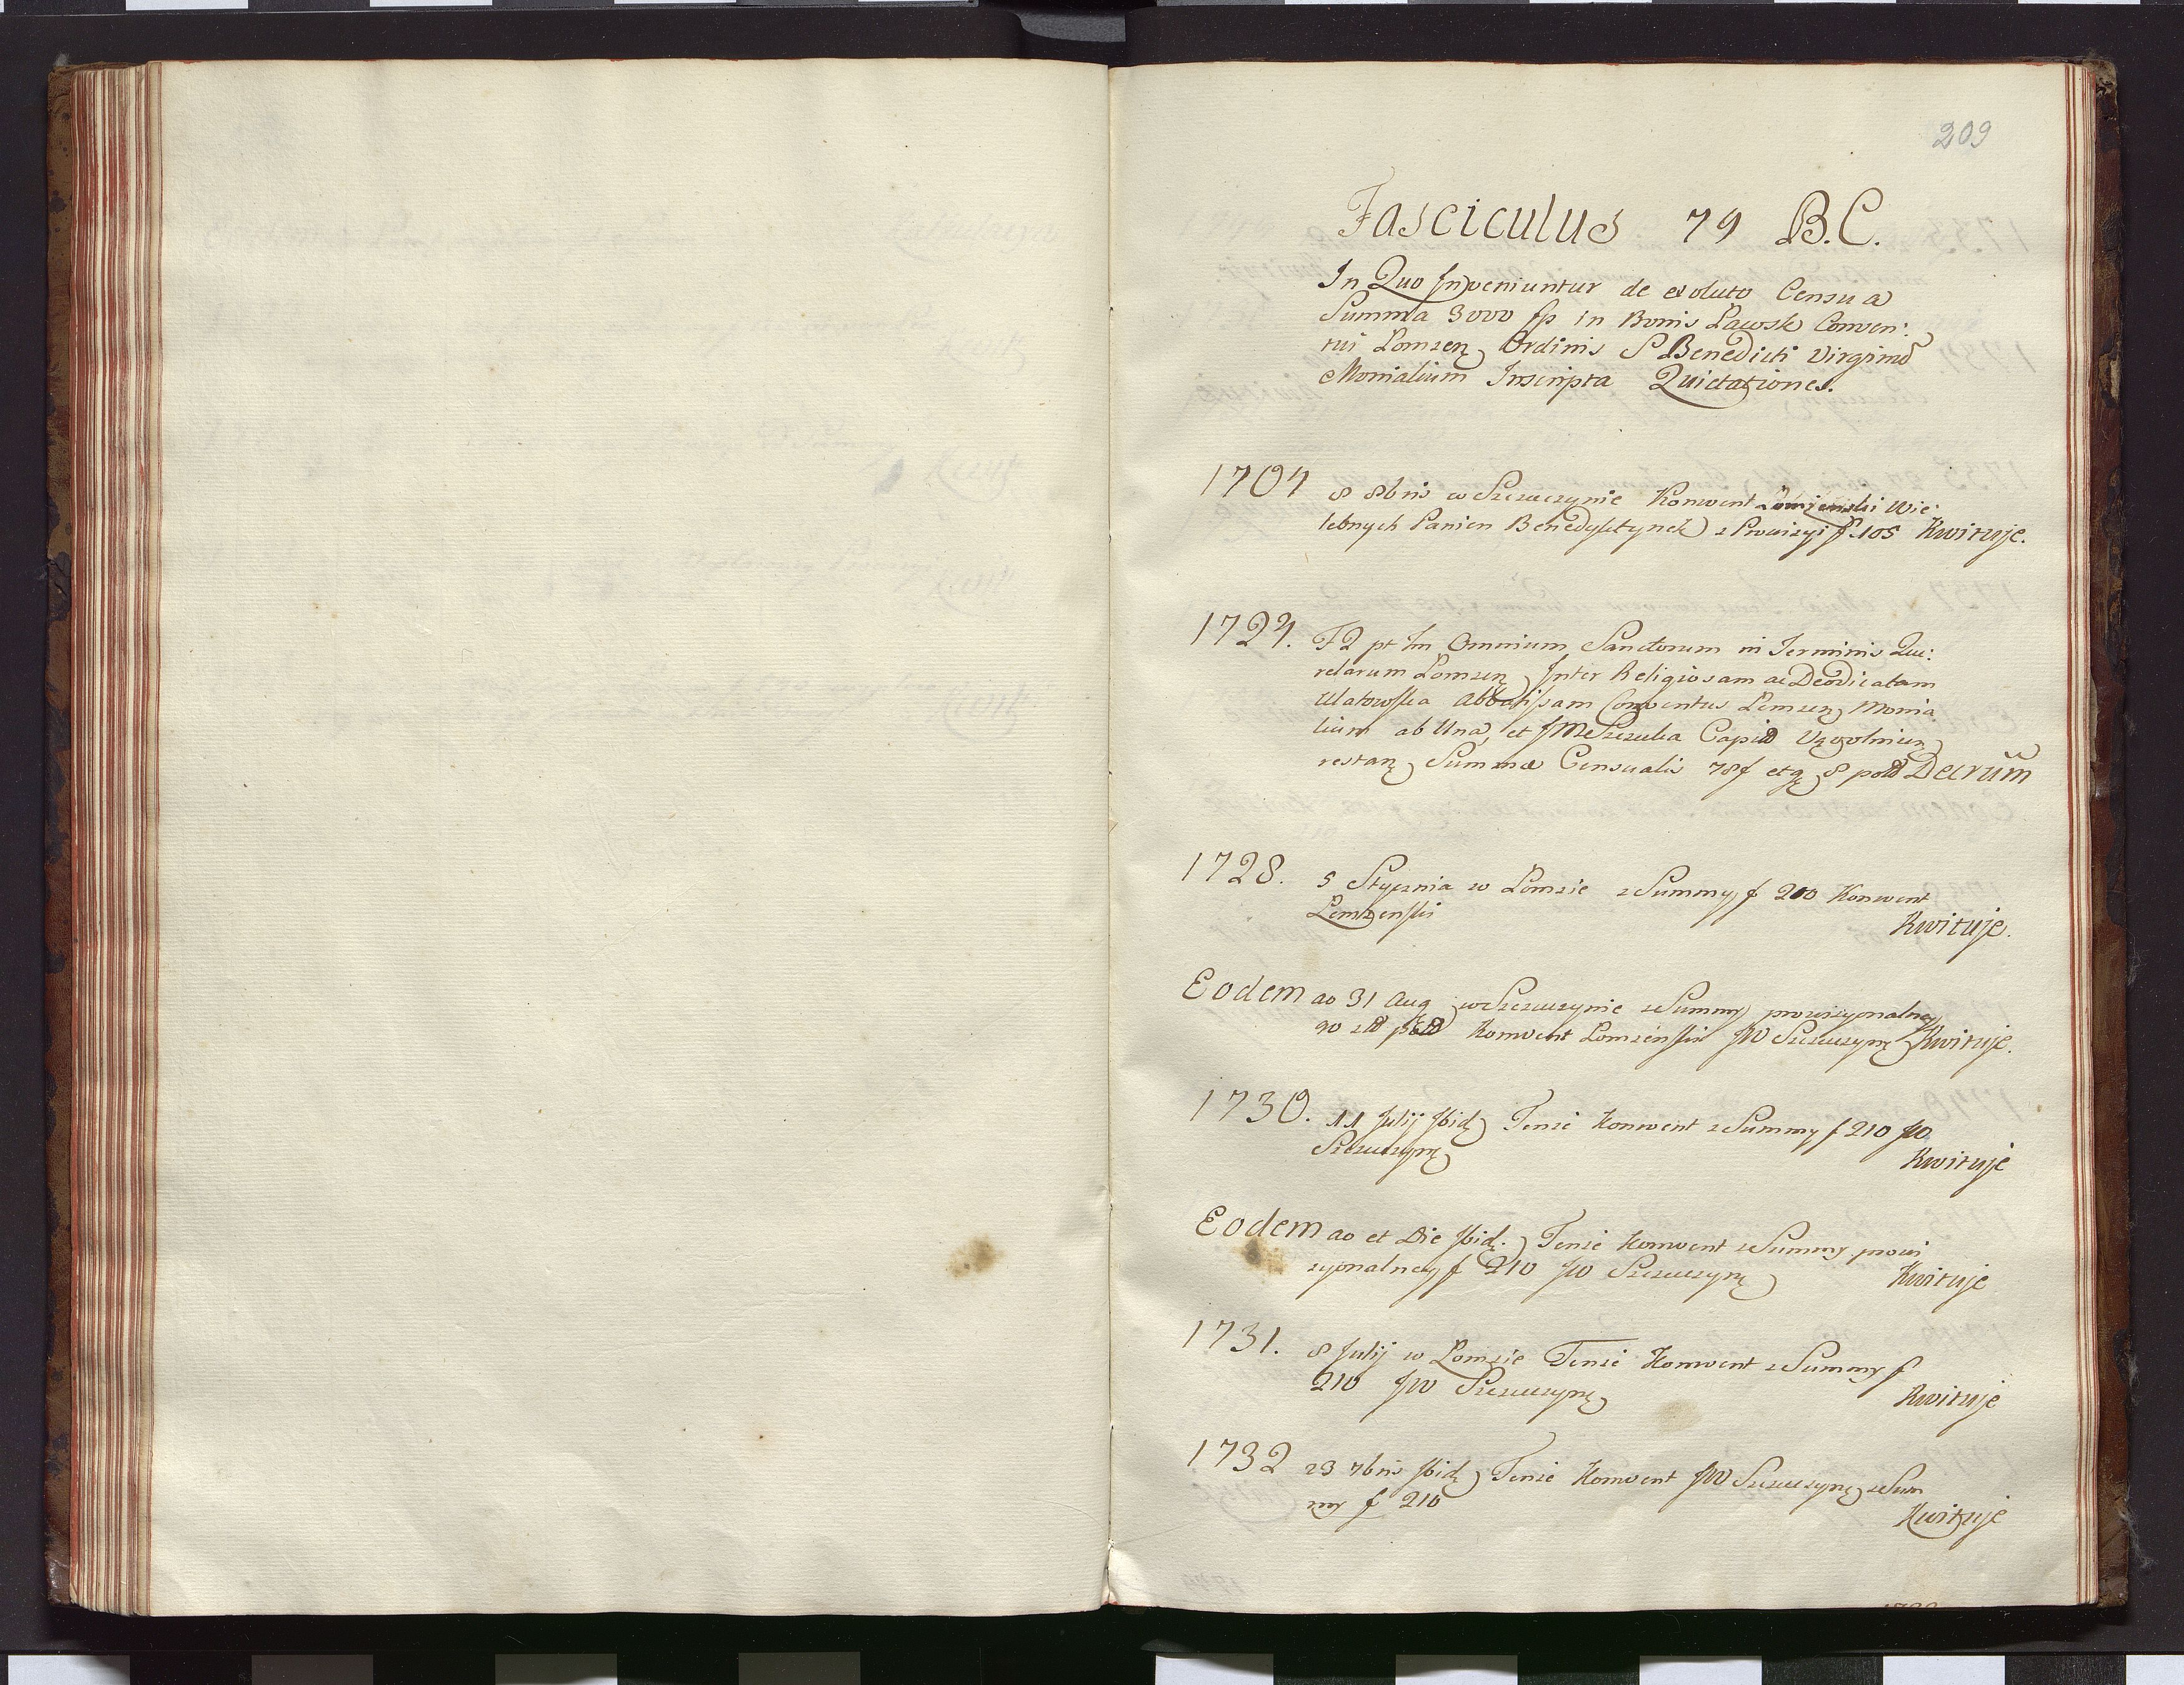 209
Fasciculus 79 B.C.
In Quo Inveniuntur de exoluto Censu a
Summa 3000 fp in Bonis Ławsk Conven:
tui Lomzen Ordinis S Benedicti Virginu
Monialium Inscripta Quietationes.
1704 8 8bris w Szczuczynie Konwent Łomżenski Wie:
lebnych Panien Benedyktynek z Prowizyi f. 105 Kwituje.
1724. F 2 pt fm Omnium Sanctorum in Terminis Que:
relarum Lomzen Inter Religiosam ac Deodicatam
Ulatowska Abbatissam Conventus Lomzen Monia
lium ab Una, et
restan Summa Censualis 78 f et g 8 pold Decrum
1728. 5 Stycznia w Lomzie z Summy f 200 Konwent
Lomzenski
Kwituje.
Eodem ao 31 Aug w Szczuczynie z Summy prowizyonalney
90 złł pold Konwent Lomzenski Szczuczyn Kwituje.
1730. 11 Julij Ibid Tenze Konwent z Summy f 210
Szczuczyn
Kwituje
Eodem ao et Die Ibid. Tenze Konwent z Summy prowi
zyonalney f 210 Szczuczyn Kwituje
1731. 8 Julij w Lomzie Tenze Konwent z Summy f
210 Szczuczyn
Kwituje
1732 23 7bris Ibid Tenze Konwent Szczuczyn z Sum
my f 210
Kwituje